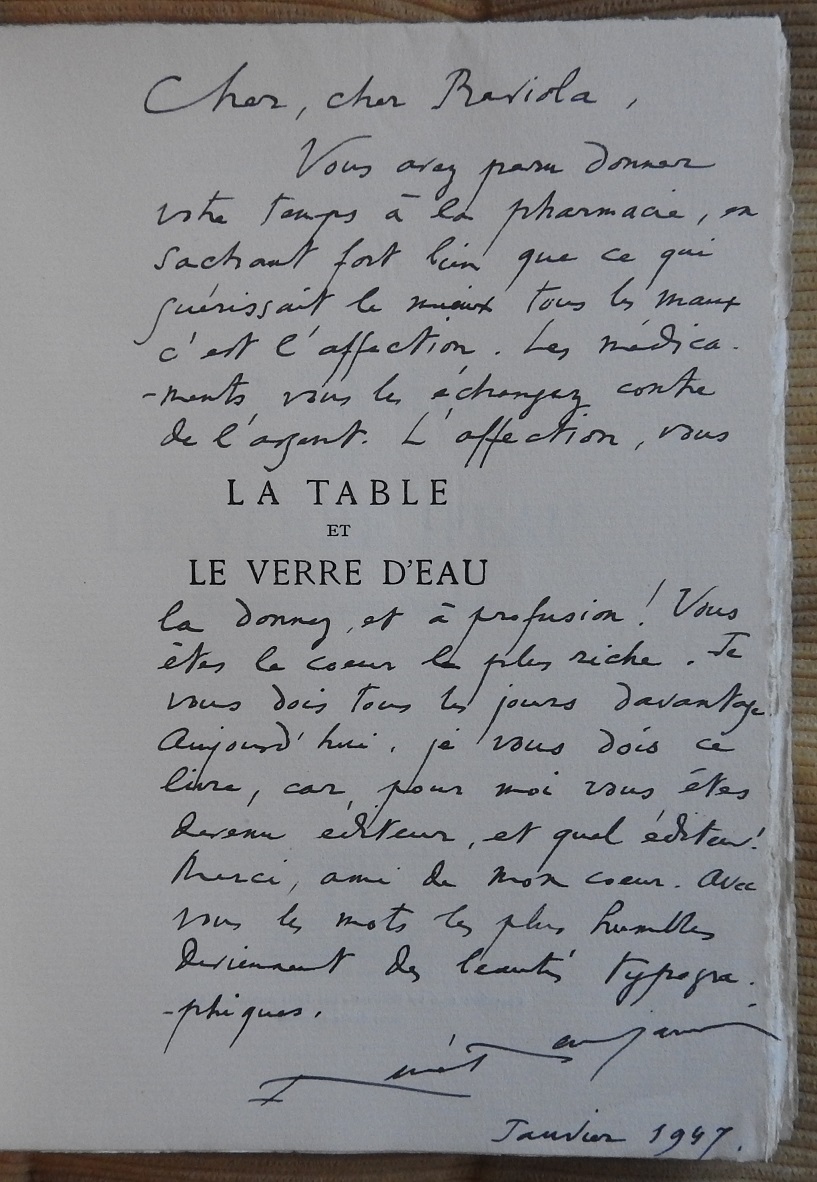 Cher, cher Raviola,
Vous avez paru donner
votre temps à la pharmacie, en
sachant fort bien que ce qui
guérissait le mieux tous les maux
c'est l'affection. Les médica-
-ments, vous les échangez contre
de l'argent. L'affection, vous
LA TABLE
ET
LE VERRE D'EAU
la donnez, et à profusion ! Vous
êtes le coeur le plus riche. Je
vous dois tous les jours davantage.
Aujourd'hui, je vous dois ce
livre, car, pour moi vous êtes
devenu éditeur, et quel éditeur !
Merci, ami de mon coeur. Avec
vous les mots les plus humbles
deviennent des beautés typogra-
-phiques.
Janvier 1947.